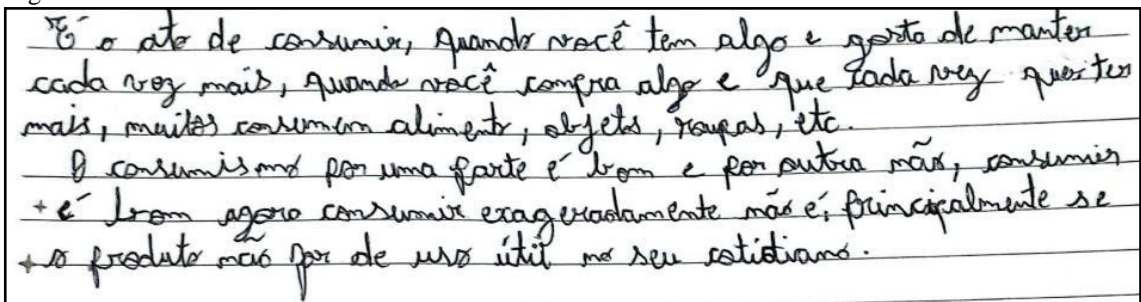 É o ato de consumir, quando você tem algo e gosta de manter
cada vez mais, quando você compra algo e que cada vez quer ter
mais, muitos consumem alimento, objetos, roupas, etc.
O consumismo por uma parte é bom e por outra não, consumir
+ é bom agora consumir exageradamente não é, principalmente se
+ o produto não for de uso útil no seu cotidiano.